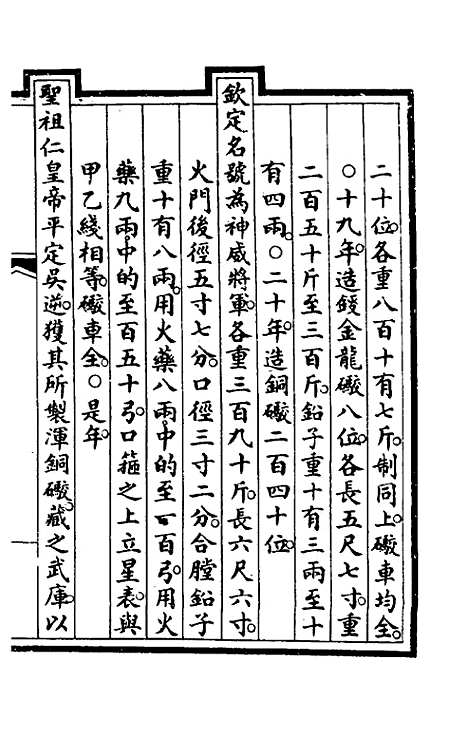 二十位。各重八百十有七斤。制同上。礮車均全。
○十九年。造鋄金龍礮八位。各長五尺七寸。重
二百五十斤至三百斤。鉛子重十有三兩至十
有四兩。○二十年。造銅礮二百四十位。
欽定名號為神威將軍。各重三百九十斤。長六尺六寸。
火門後徑五寸七分。口徑三寸二分。合膛鉛子
重十有八兩。用火藥八兩。中的至一百弓。用火
藥九兩中的至百五十弓。口箍之上立星表。與
甲乙綫相等。礮車全。○是年。
聖祖仁皇帝平定吳逆。獲其所製渾銅礮。藏之武庫。以